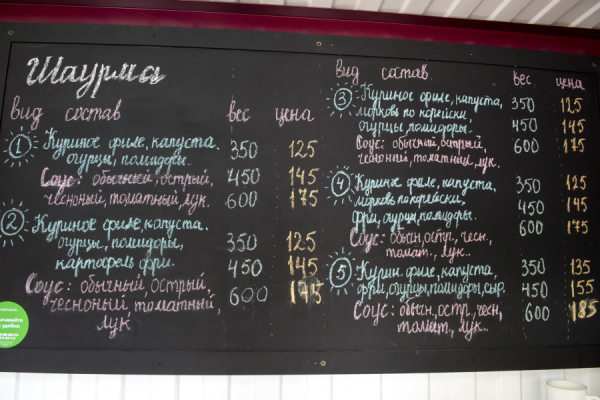 Шаурма
вид состав вес цена
1 Куриное филе, капуста. 350 125
огурцы, помидоры.
Соус: обычный, острый, 450 145
чесночный, томатный, лук 600 175
2 Куриное филе, капуста.
огурцы, помидоры, 350 125
картофель фри. 450 145
Соус: обычный острый, 600 175
чесночный томатный,
лук
Вид состав вес цена
3 Куриное филе, капуста, 350 125
морковь по корейски, 450 145
огурцы, помидоры.
Соус: обычный, острый, 600 175
чесночный, томатный, лук
4 Куриное филе, капуста, 350 125
морковь по корейски, 450 145
фри, огурцы, помидоры. 600 175
Соус: обычн, остр, чесн.,
томат., лук..
5 Курин. филе, капуста, 350 135
фри, огурцы, помидоры, сыр. 450 155
Соус: обычн, остр, чесн, 600 185
томат, лук..